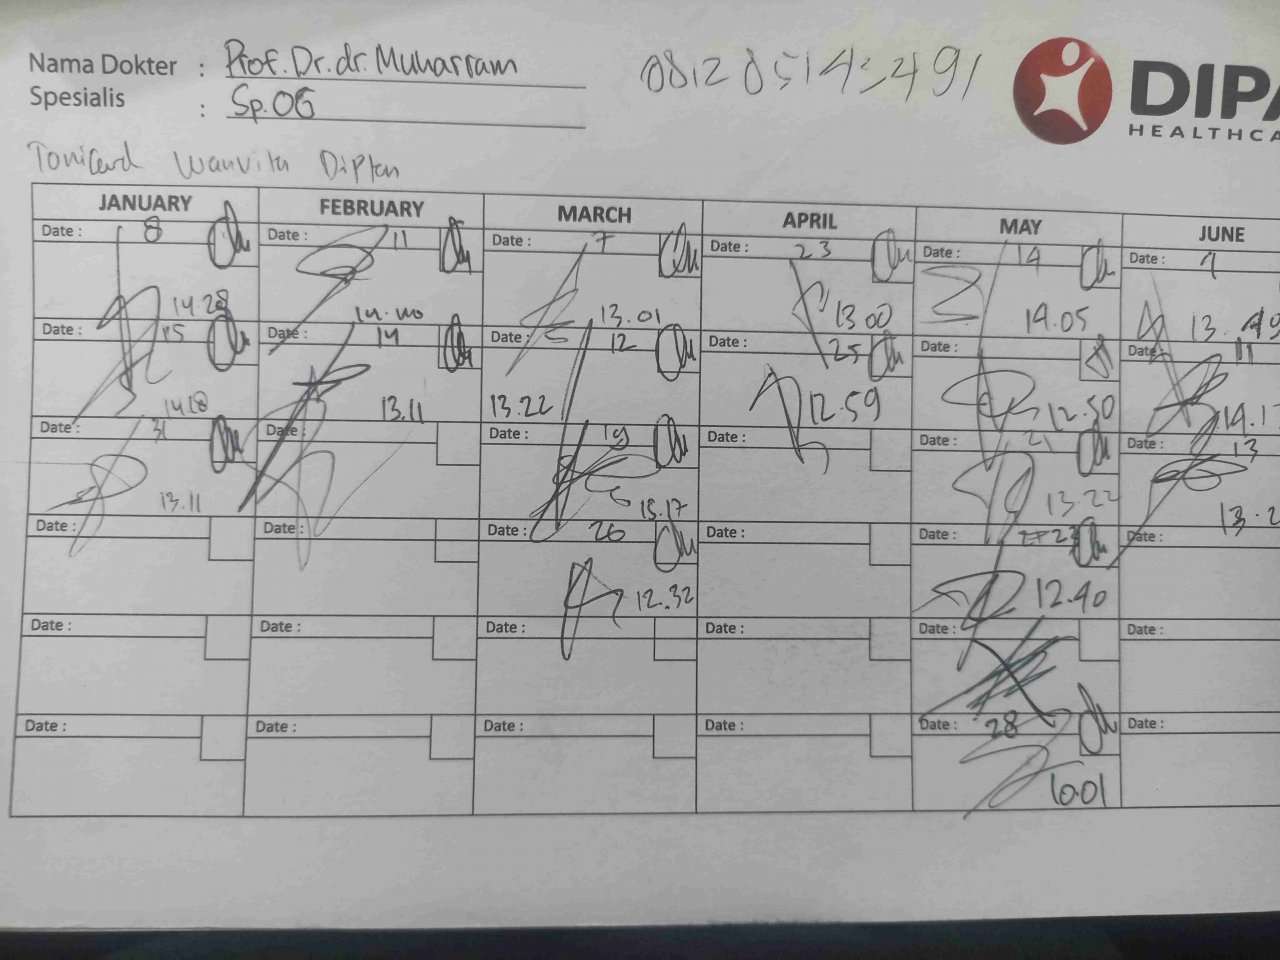 Nama Dokter : Prof. Dr. dr. Muharram
081285143491
Spesialis : Sp.OG
DIPA
HEALTHCA
JANUARY FEBRUARY MARCH APRIL MAY JUNE
Date : 8 Date : 11 Date : 7 Date : 23 Date : 14 Date : 4
14.28 14.40 13.01 13.00 14.05 13.49
Date : 15 Date : 14 Date : 12 Date : 25 Date : Date : 11
14.18 13.11 13.22 12.59 12.50 14.1
Date : 31 Date : Date : 19 Date : Date : 21 Date : 13
13.11 15.17 13.22 13.2
Date : Date : Date : 26 Date : Date : 23 Date :
12.32 12.40
Date : Date : Date : Date : Date : Date :
Date : Date : Date : Date : Date : 28 Date :
10.01